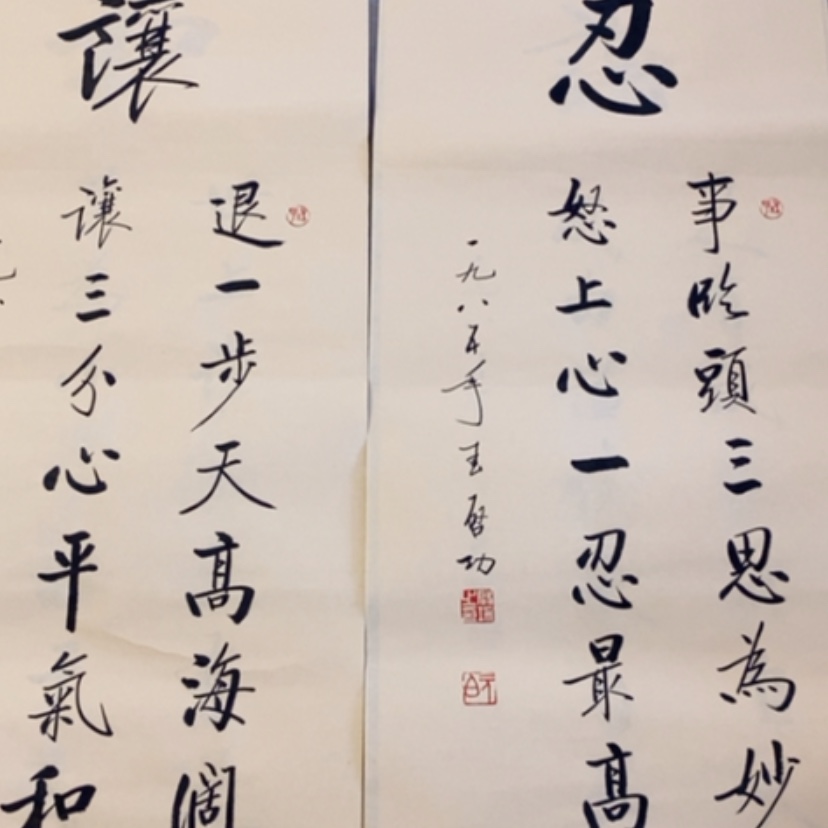 忍
事臨頭三思為妙
怒上心一忍最高
一九八五年 啓功
讓
退一步天高海濶
讓三分心平氣和